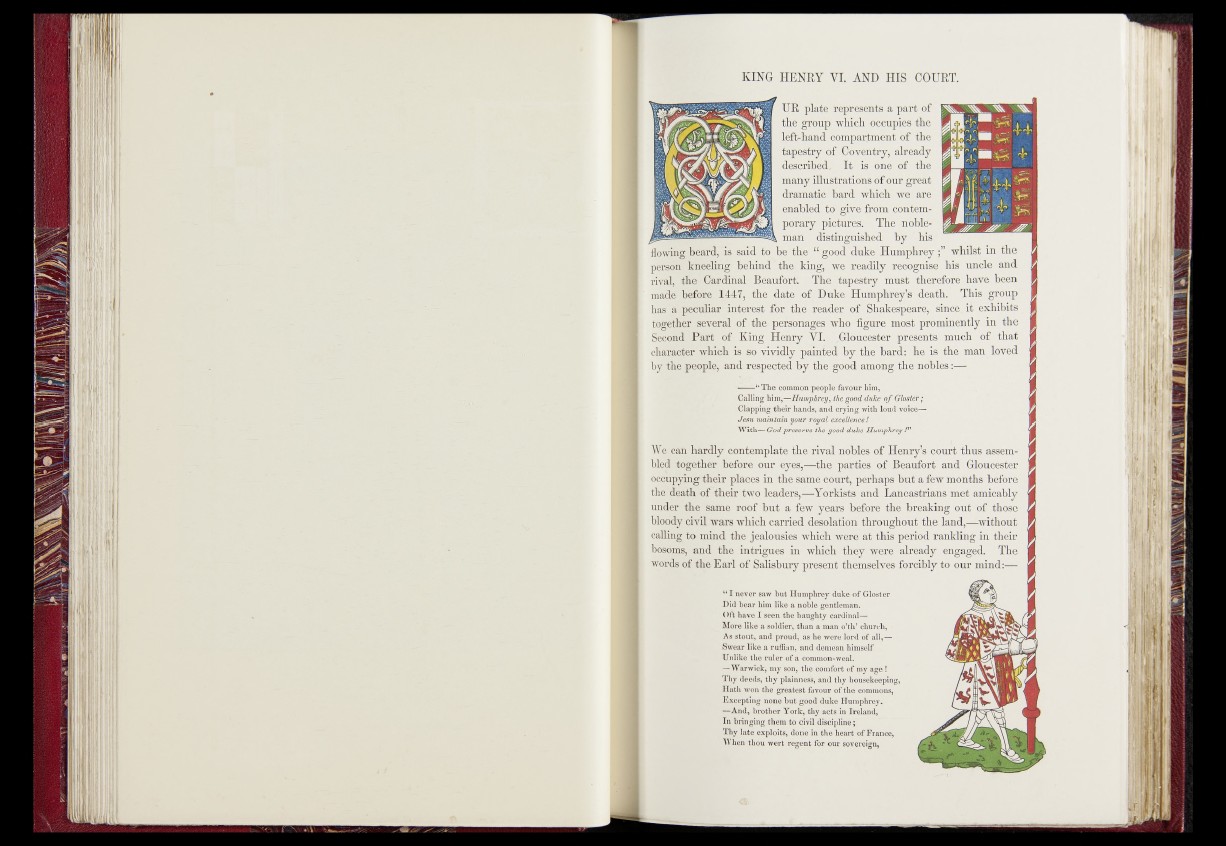 KING HENRY VI. AND HIS COURT.
OUR plate represents a part of
the group which occupies the
left-hand compartment of the
tapestry of Coventry, already
described. It is one of the
many illustrations of our great
dramatic bard which we are
enabled to give from contem-
porary pictures. The noble-
man distinguished by his
flowing beard, is said to be the “good duke Humphrey;” whilst in the
person kneeling behind the king, we readily recognise his uncle and
rival, the Cardinal Beaufort. The tapestry must therefore have been
made before 1447, the date of Duke Humphrey's death. This group
has a peculiar interest for the reader of Shakespeare, since it exhibits
together several of the personages who figure most prominently in the
Second Part of King Henry VI. Gloucester presents much of that
character which is so vividly painted by the bard: he is the man loved
by the people, and respected by the good among the nobles:—
——“The common people favour him,
Calling him,—Humphrey, the good duke of Gloster;
Clapping their hands, and crying with loud voice—
Jesu maintain your royal excellence!
With—God preserve the good duke Humphrey!”
We can hardly contemplate the rival nobles of Henry's court thus assem-
bled together before our eyes,—the parties of Beaufort and Gloucester
occupying their places in the same court, perhaps but a few months before
the death of their two leaders,—Yorkists and Lancastrians met amicably
under the same roof but a few years before the breaking out of those
bloody civil wars which carried desolation throughout the land,—without
calling to mind the jealousies which were at this period rankling in their
bosoms, and the intrigues in which they were already engaged. The
words of the Earl of Salisbury present themselves forcibly to our mind:—
“I never saw but Humphrey duke of Gloster
Did bear him like a noble gentleman.
Oft have I seen the haughty cardinal—
More like a soldier, than a man o'th' church,
As stout, and proud, as he were lord of all,—
Swear like a ruffian, and demean himself
Unlike the ruler of a common-weal.
—Warwick, my son, the comfort of my age!
Thy deeds, thy plainness, and thy housekeeping,
Hath won the greatest favour of the commons,
Excepting none but good duke Humphrey.
—And, brother York, thy acts in Ireland,
In bringing them to civil discipline;
Thy late exploits, done in the heart of France,
When thou wert regent for our sovereign,